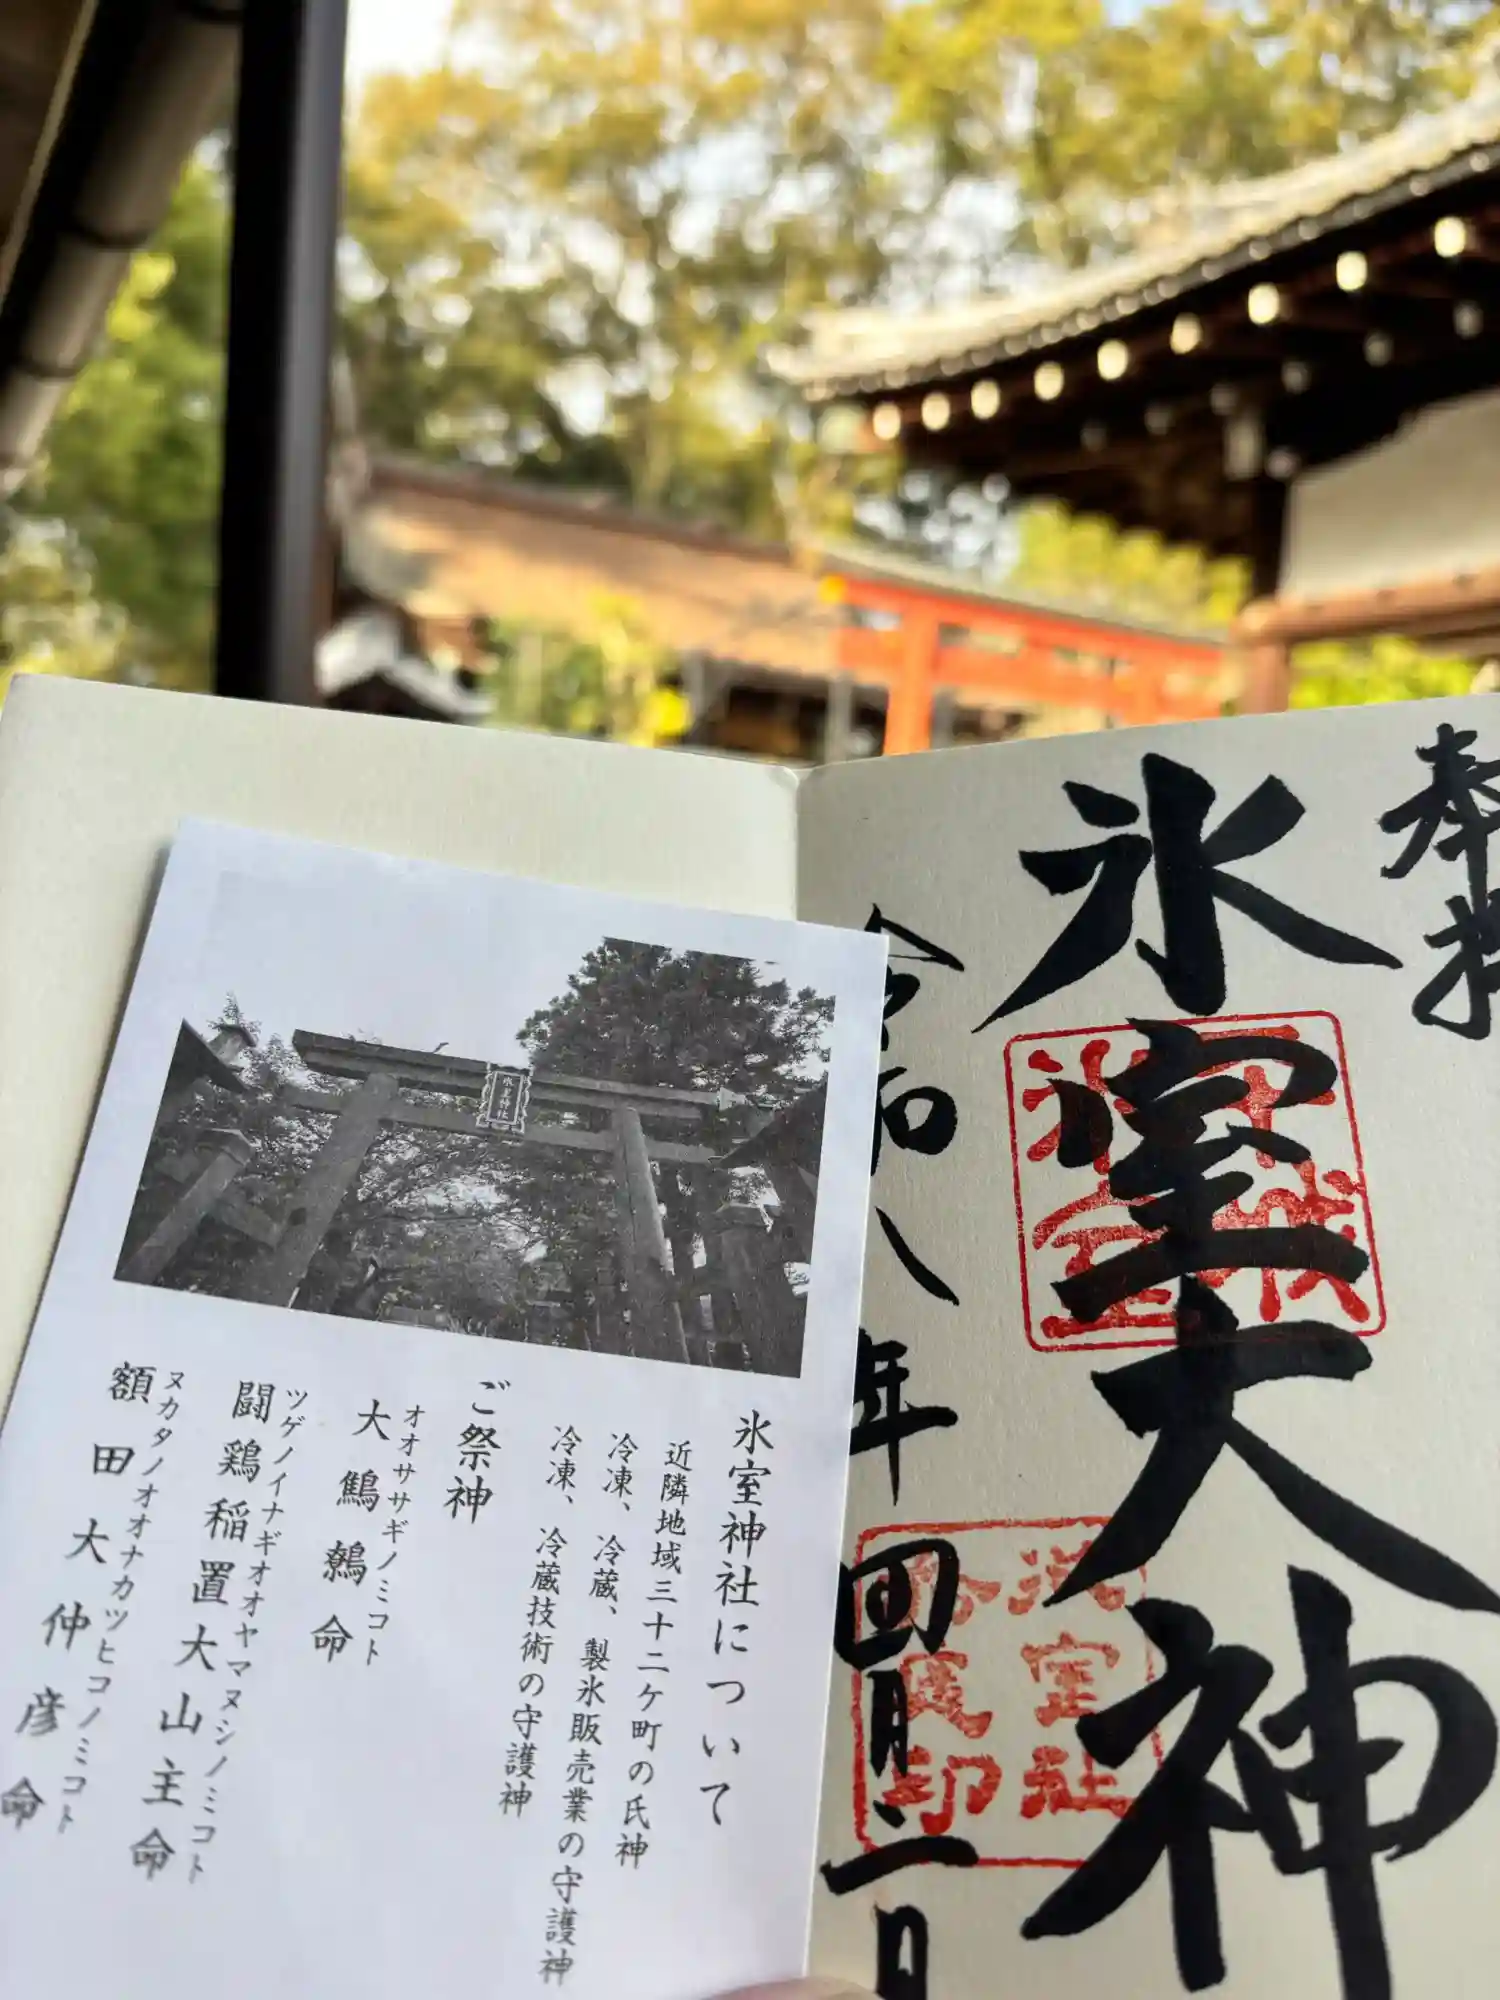 奉拝
氷室大神
令和八年四月二日
氷室神社
氷室神社について
近隣地域三十二ケ町の氏神
冷凍、冷蔵、製氷販売業の守護神
冷凍、冷蔵技術の守護神
ご祭神
オオササギノミコト
大鷦鷯命
ツゲノイナギオオヤマヌシノミコト
闘鶏稲置大山主命
ヌカタノオオナカツヒコノミコト
額田大仲彦命